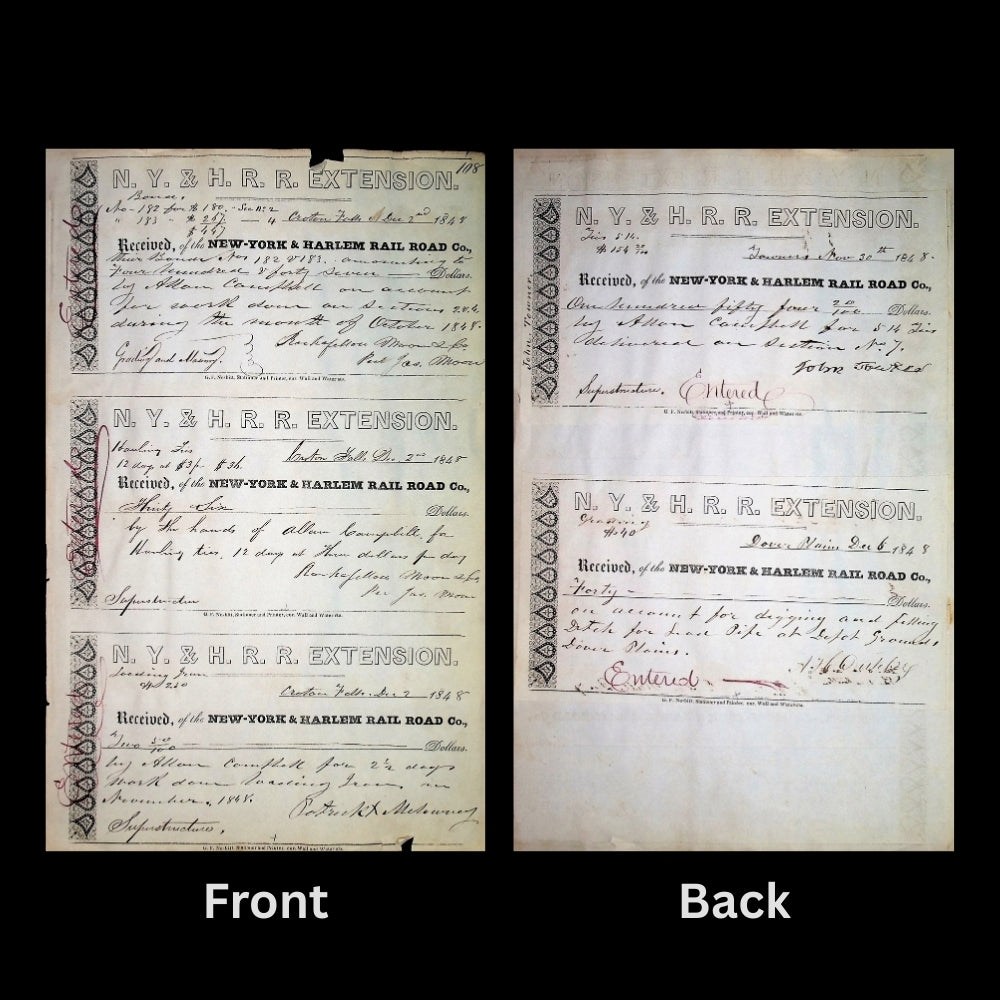 108
N. Y. & H. R. R. EXTENSION.
Bonds.
No - 182 for $ 180. - Sec No 2
" 183 " $ 267 — 4
$ 447
Croton Falls Dec 2nd 1848
Received, of the NEW-YORK & HARLEM RAIL ROAD Co.,
their Bonds Nos 182 & 183. amounting to
Four hundred & forty seven Dollars.
by Allan Campbell on account
for work done on sections 2 & 4.
during the month of October 1848.
Rockafellow Moon & Co
Per Jas. Moon
Grading and Masonry.
G. F. Nesbitt, Stationer and Printer, cor. Wall and Water sts.
Entered
N. Y. & H. R. R. EXTENSION.
Hauling Ties
12 day at $3 pr $36.
Croton Falls Dec 2nd 1848
Received, of the NEW-YORK & HARLEM RAIL ROAD Co.,
Thirty Six Dollars.
by the hands of Allan Campbell, for
Hauling ties, 12 days at Three dollars pr day
Rockafellow Moon & Co
Per Jas. Moon
Superstructure
G. F. Nesbitt, Stationer and Printer, cor. Wall and Water sts.
Entered
N. Y. & H. R. R. EXTENSION.
Loading Iron
$ 2 50
Croton Falls. Dec 2 1848
Received, of the NEW-YORK & HARLEM RAIL ROAD Co.,
Two 50/100 Dollars.
by Allan Campbell for 2½ days
work done loading Iron in
November, 1848.
Patrick X
Superstructure.
G. F. Nesbitt, Stationer and Printer, cor. Wall and Water sts.
Entered
Front
N. Y. & H. R. R. EXTENSION.
Ties 514.
$ 154 20/100
Towners Nov 30th 1848.
Received, of the NEW-YORK & HARLEM RAIL ROAD Co.,
One hundred fifty four 20/100 Dollars.
by Allan Campbell for 514 Ties
delivered on Section No 7.
John Towner
Superstructure. Entered
G. F. Nesbitt, Stationer and Printer, cor. Wall and Water sts.
John Towner
N. Y. & H. R. R. EXTENSION.
Grading
$40
Dover Plains Dec 6 1848
Received, of the NEW-YORK & HARLEM RAIL ROAD Co.,
Forty - Dollars.
on account for digging and filling
Ditch for Lead Pipe at Depot Grounds
Dover Plains.
Entered
G. F. Nesbitt, Stationer and Printer, cor. Wall and Water sts.
Back